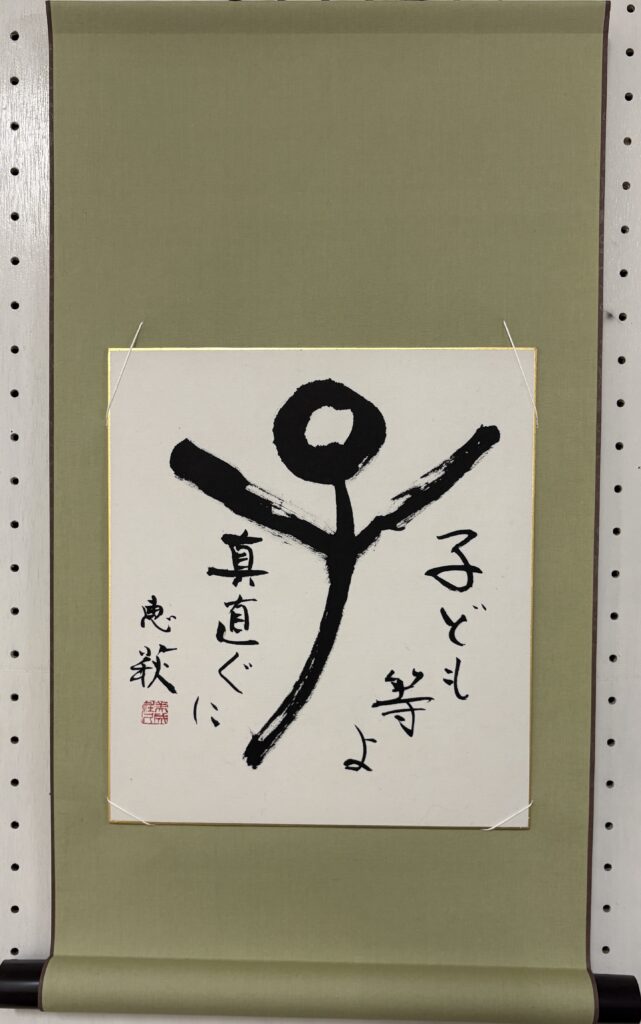 子
子ども
等
よ
真直ぐ
に
恵萩